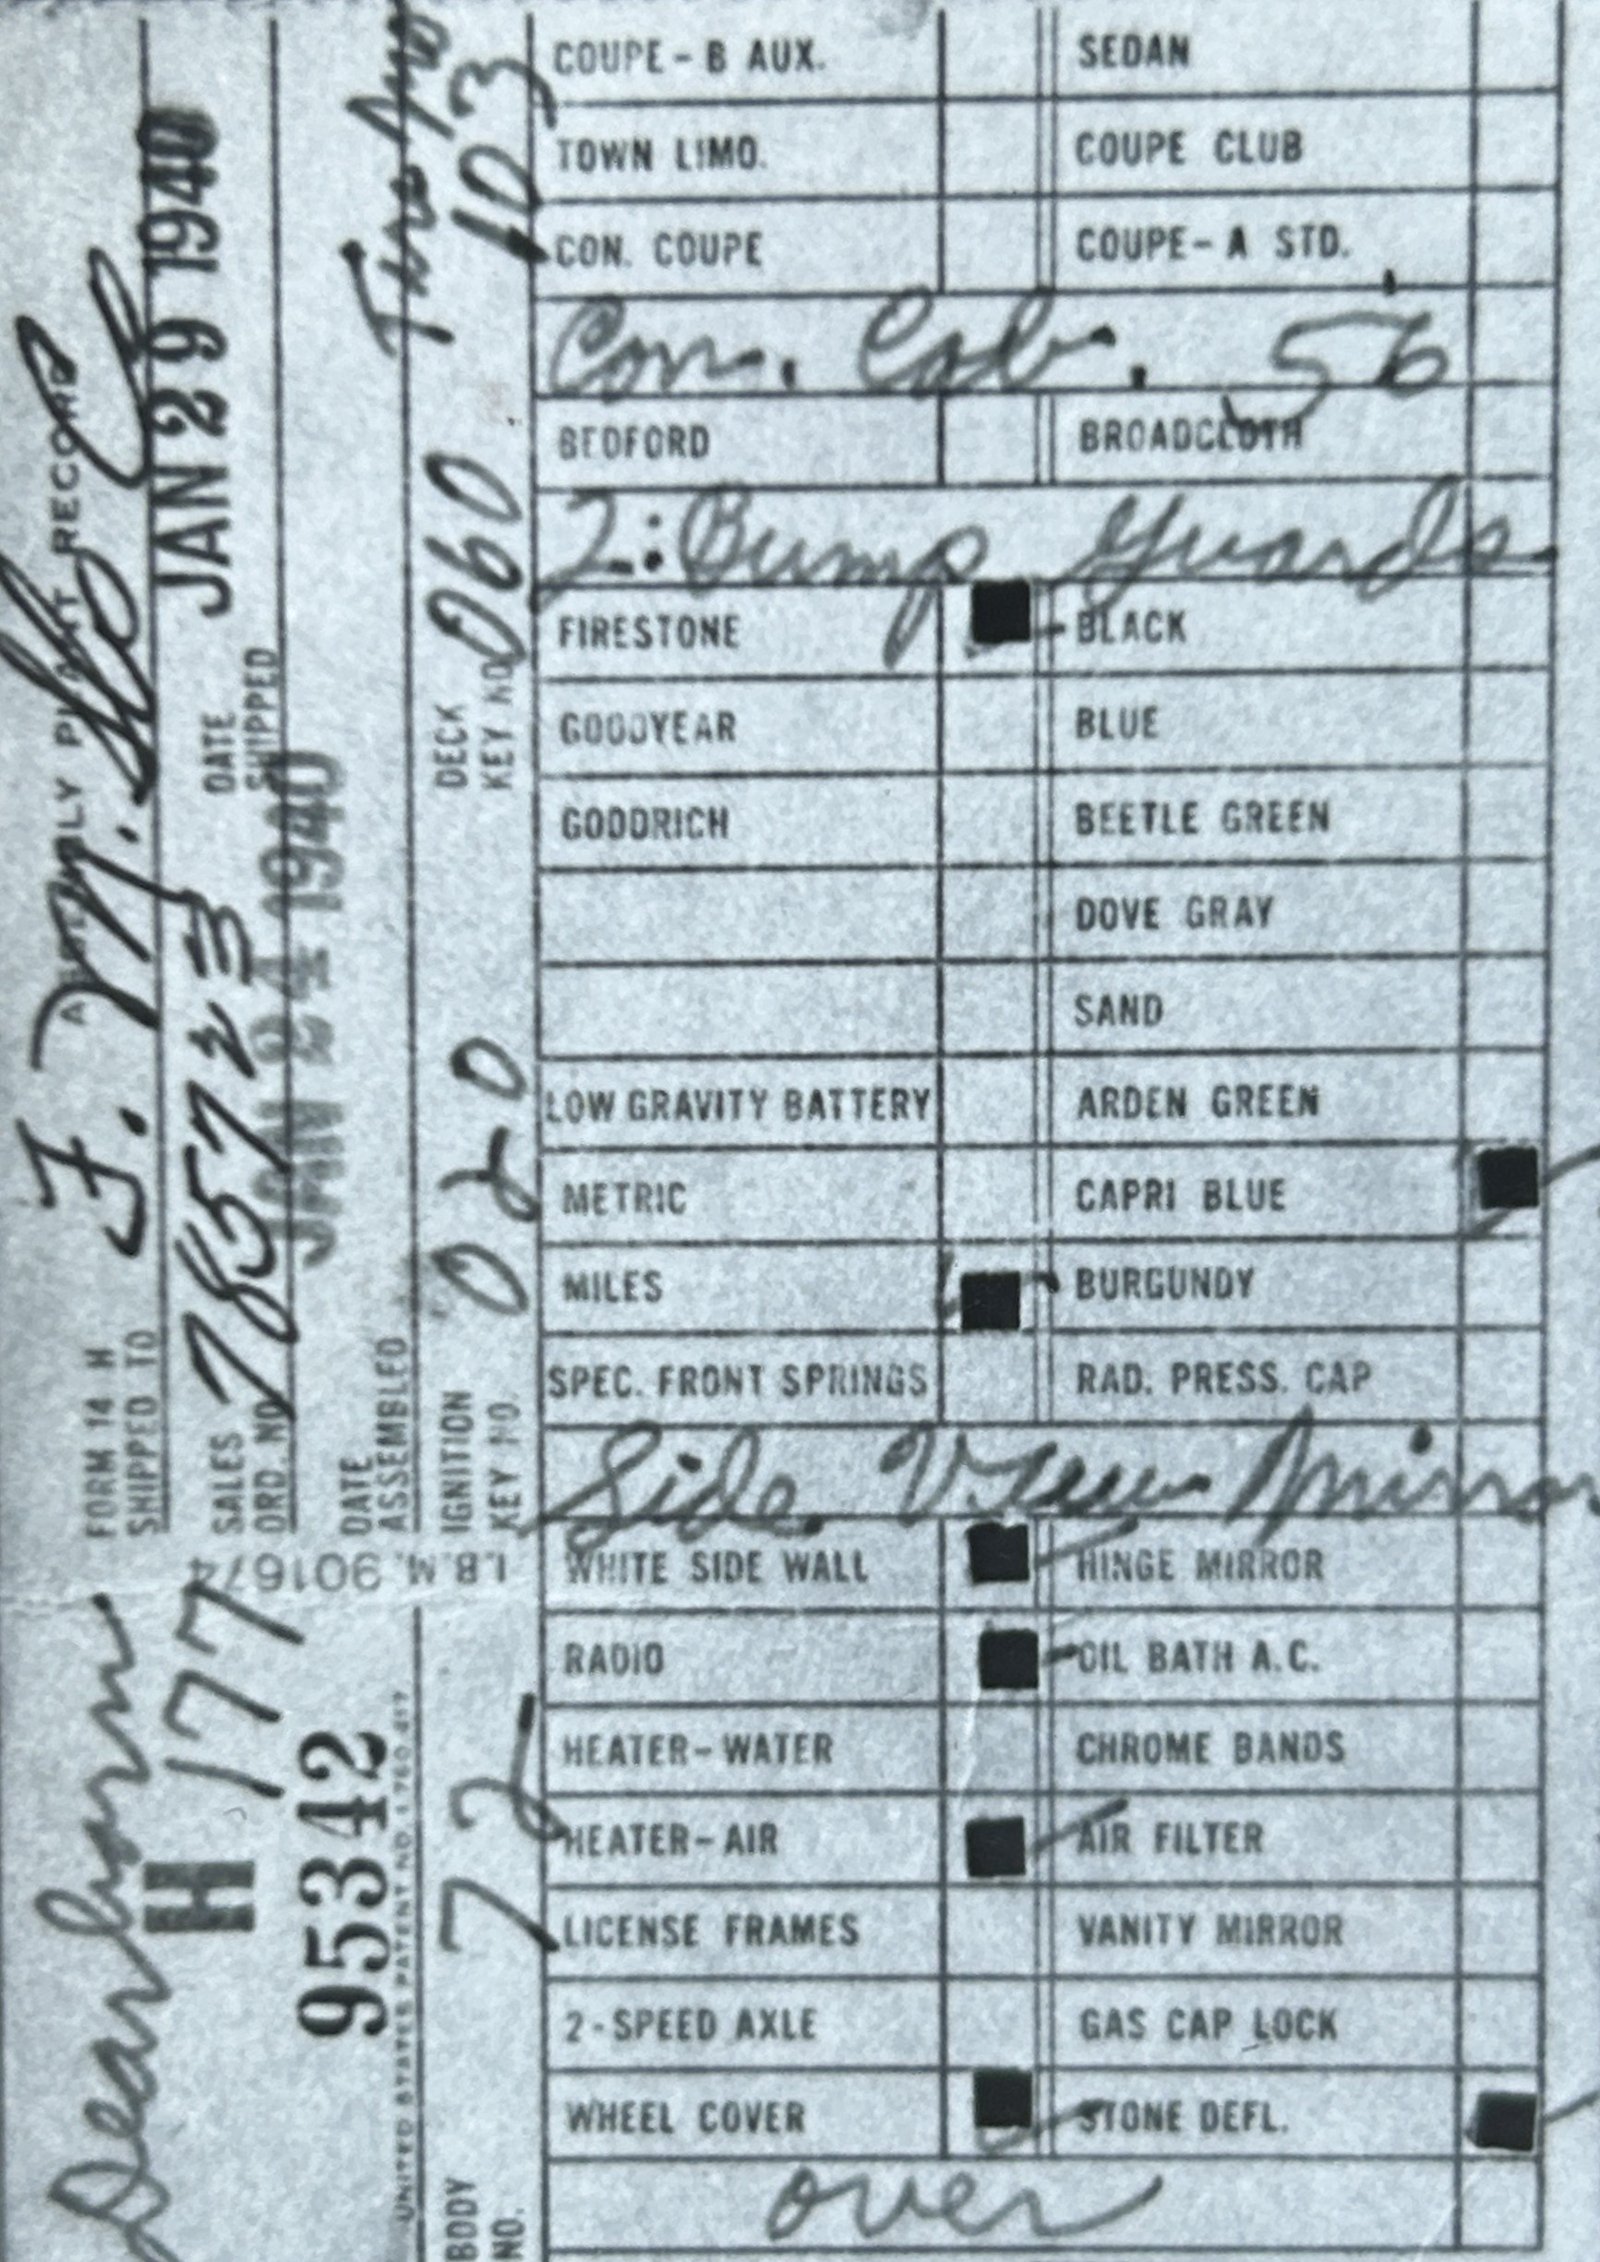 FORM 14 H
ASSEMBLY PLANT RECORD
SHIPPED TO
F. M. Co
Dearborn
SALES ORD. NO.
7857
DATE SHIPPED
JAN 29 1940
H 177
DATE ASSEMBLED
JAN 24 1940
95342
I.B.M. 901674
UNITED STATES PATENT NO. 1,760,417
IGNITION KEY NO. 020
DECK KEY NO. 060
103
BODY NO. 72
COUPE - B AUX. SEDAN
TOWN LIMO. COUPE CLUB
CON. COUPE COUPE - A STD.
Con. Cab. 56
BEDFORD BROADCLOTH
2: Bump Guards
FIRESTONE BLACK
GOODYEAR BLUE
GOODRICH BEETLE GREEN
DOVE GRAY
SAND
LOW GRAVITY BATTERY ARDEN GREEN
METRIC CAPRI BLUE
MILES BURGUNDY
SPEC. FRONT SPRINGS RAD. PRESS. CAP
Side View Mirror
WHITE SIDE WALL HINGE MIRROR
RADIO OIL BATH A.C.
HEATER - WATER CHROME BANDS
HEATER - AIR AIR FILTER
LICENSE FRAMES VANITY MIRROR
2 - SPEED AXLE GAS CAP LOCK
WHEEL COVER STONE DEFL.
over